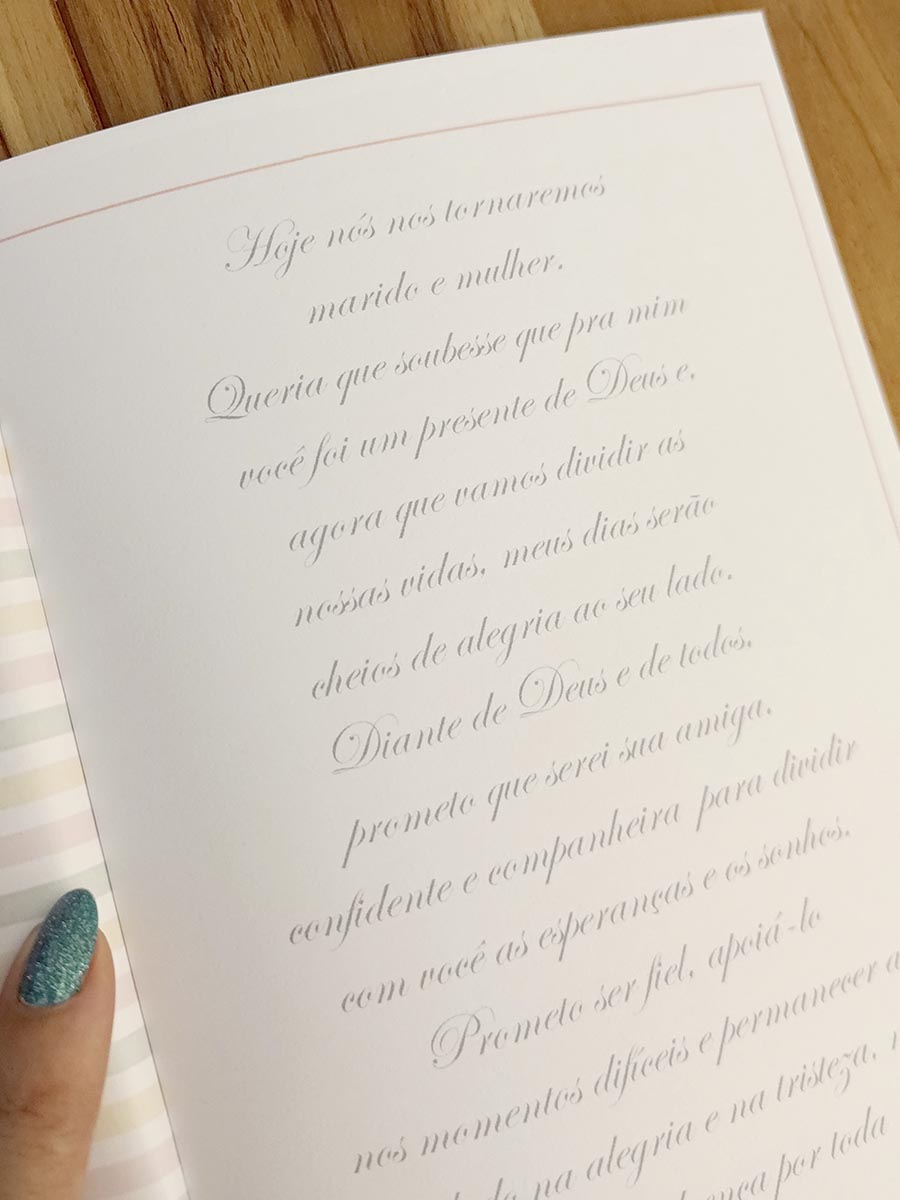 Hoje nós nos tornaremos
marido e mulher.
Queria que soubesse que pra mim
você foi um presente de Deus e,
agora que vamos dividir as
nossas vidas, meus dias serão
cheios de alegria ao seu lado.
Diante de Deus e de todos,
prometo que serei sua amiga,
confidente e companheira para dividir
com você as esperanças e os sonhos.
Prometo ser fiel, apoiá-lo
nos momentos difíceis e permanecer
na alegria e na tristeza,
por toda